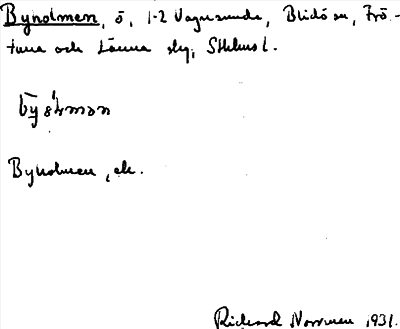 Byholmen, ö, 1-2 Vagnsunda, Blidö sn, Frö-
tuna och Länna slg, Sthlms l.
Byholmen, ek.
Richard Norrmen 1931.